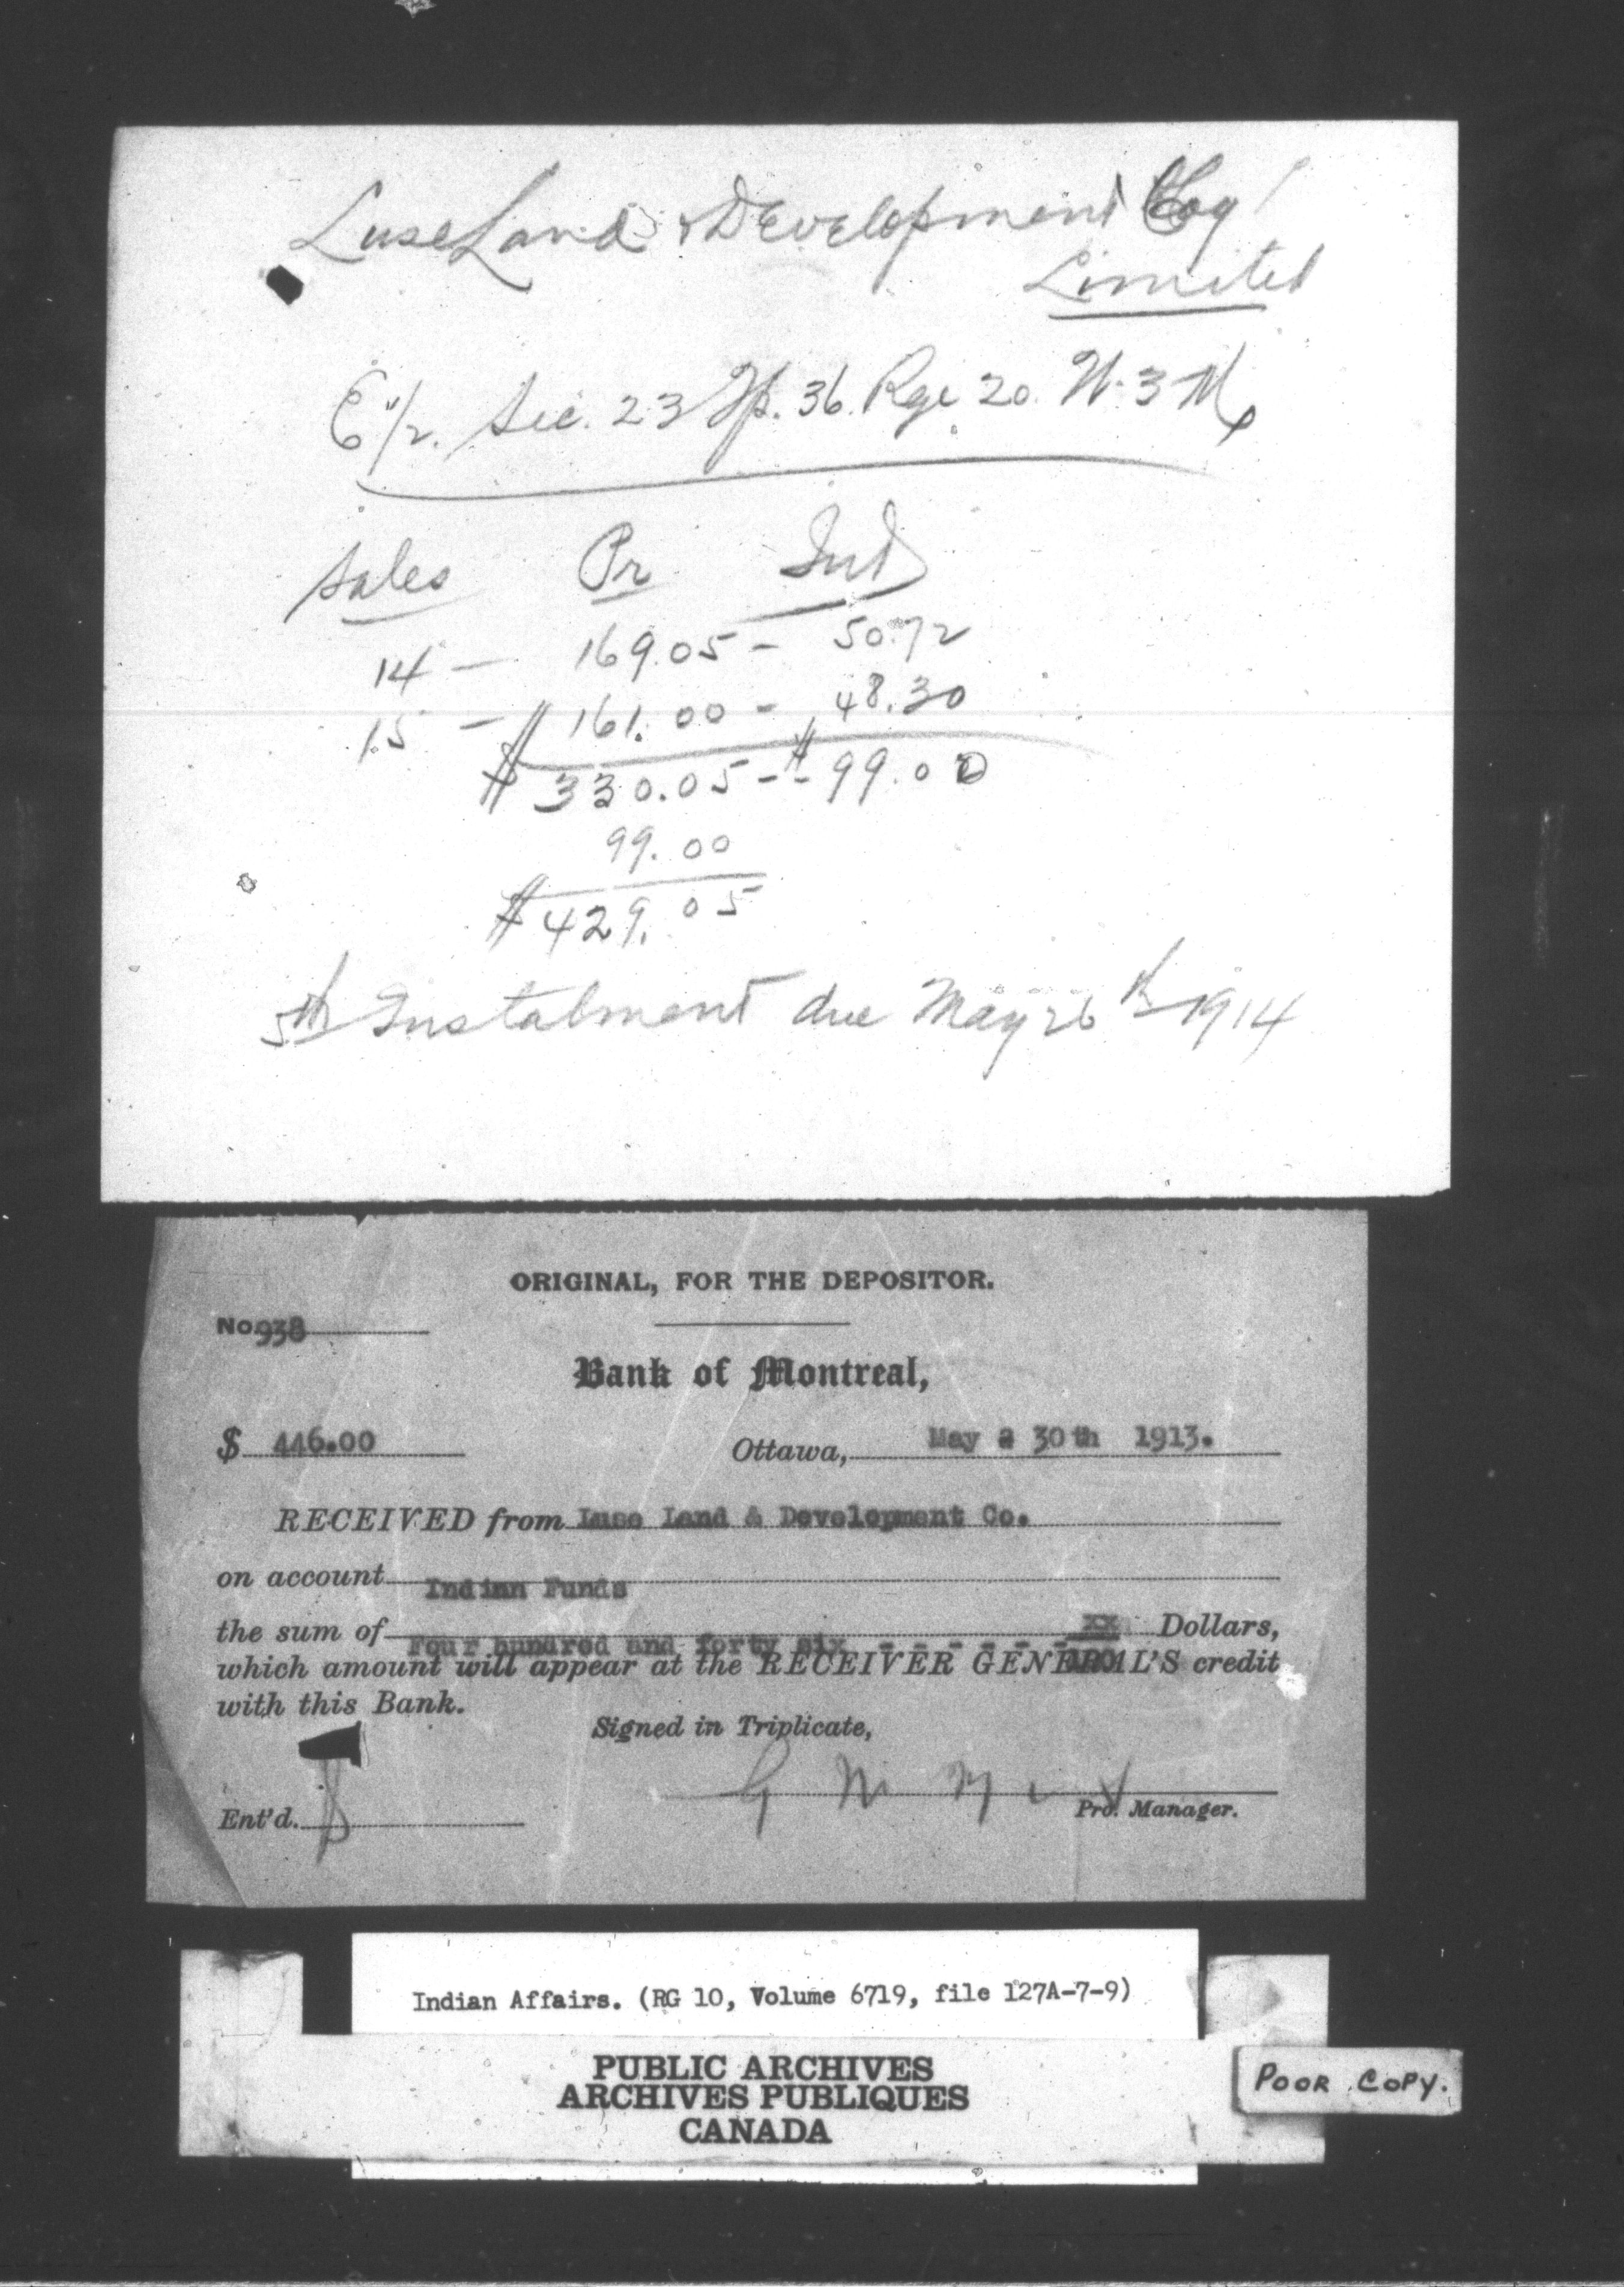 Luse Land & Development Coy
Limited
E 1/2. Sec. 23 Tp. 36. Rge 20. W. 3 M
Sales Pr Int
14 — 169.05 - 50.72
15 - $ 161.00 - $ 48.30
$ 330.05 - - $ 99.00
99.00
$ 429.05
5th Instalment due May 26th 1914
ORIGINAL, FOR THE DEPOSITOR.
No. 938
Bank of Montreal,
$ 446.00 Ottawa, May 2 30th 1913.
RECEIVED from Luse Land & Development Co.
on account Indian Funds
the sum of Four hundred and forty six - - - - - - xx/100 Dollars,
which amount will appear at the RECEIVER GENERAL'S credit
with this Bank.
Signed in Triplicate,
Ent'd. Pro. Manager.
Indian Affairs. (RG 10, Volume 6719, file 127A-7-9)
PUBLIC ARCHIVES
ARCHIVES PUBLIQUES
CANADA
POOR COPY.